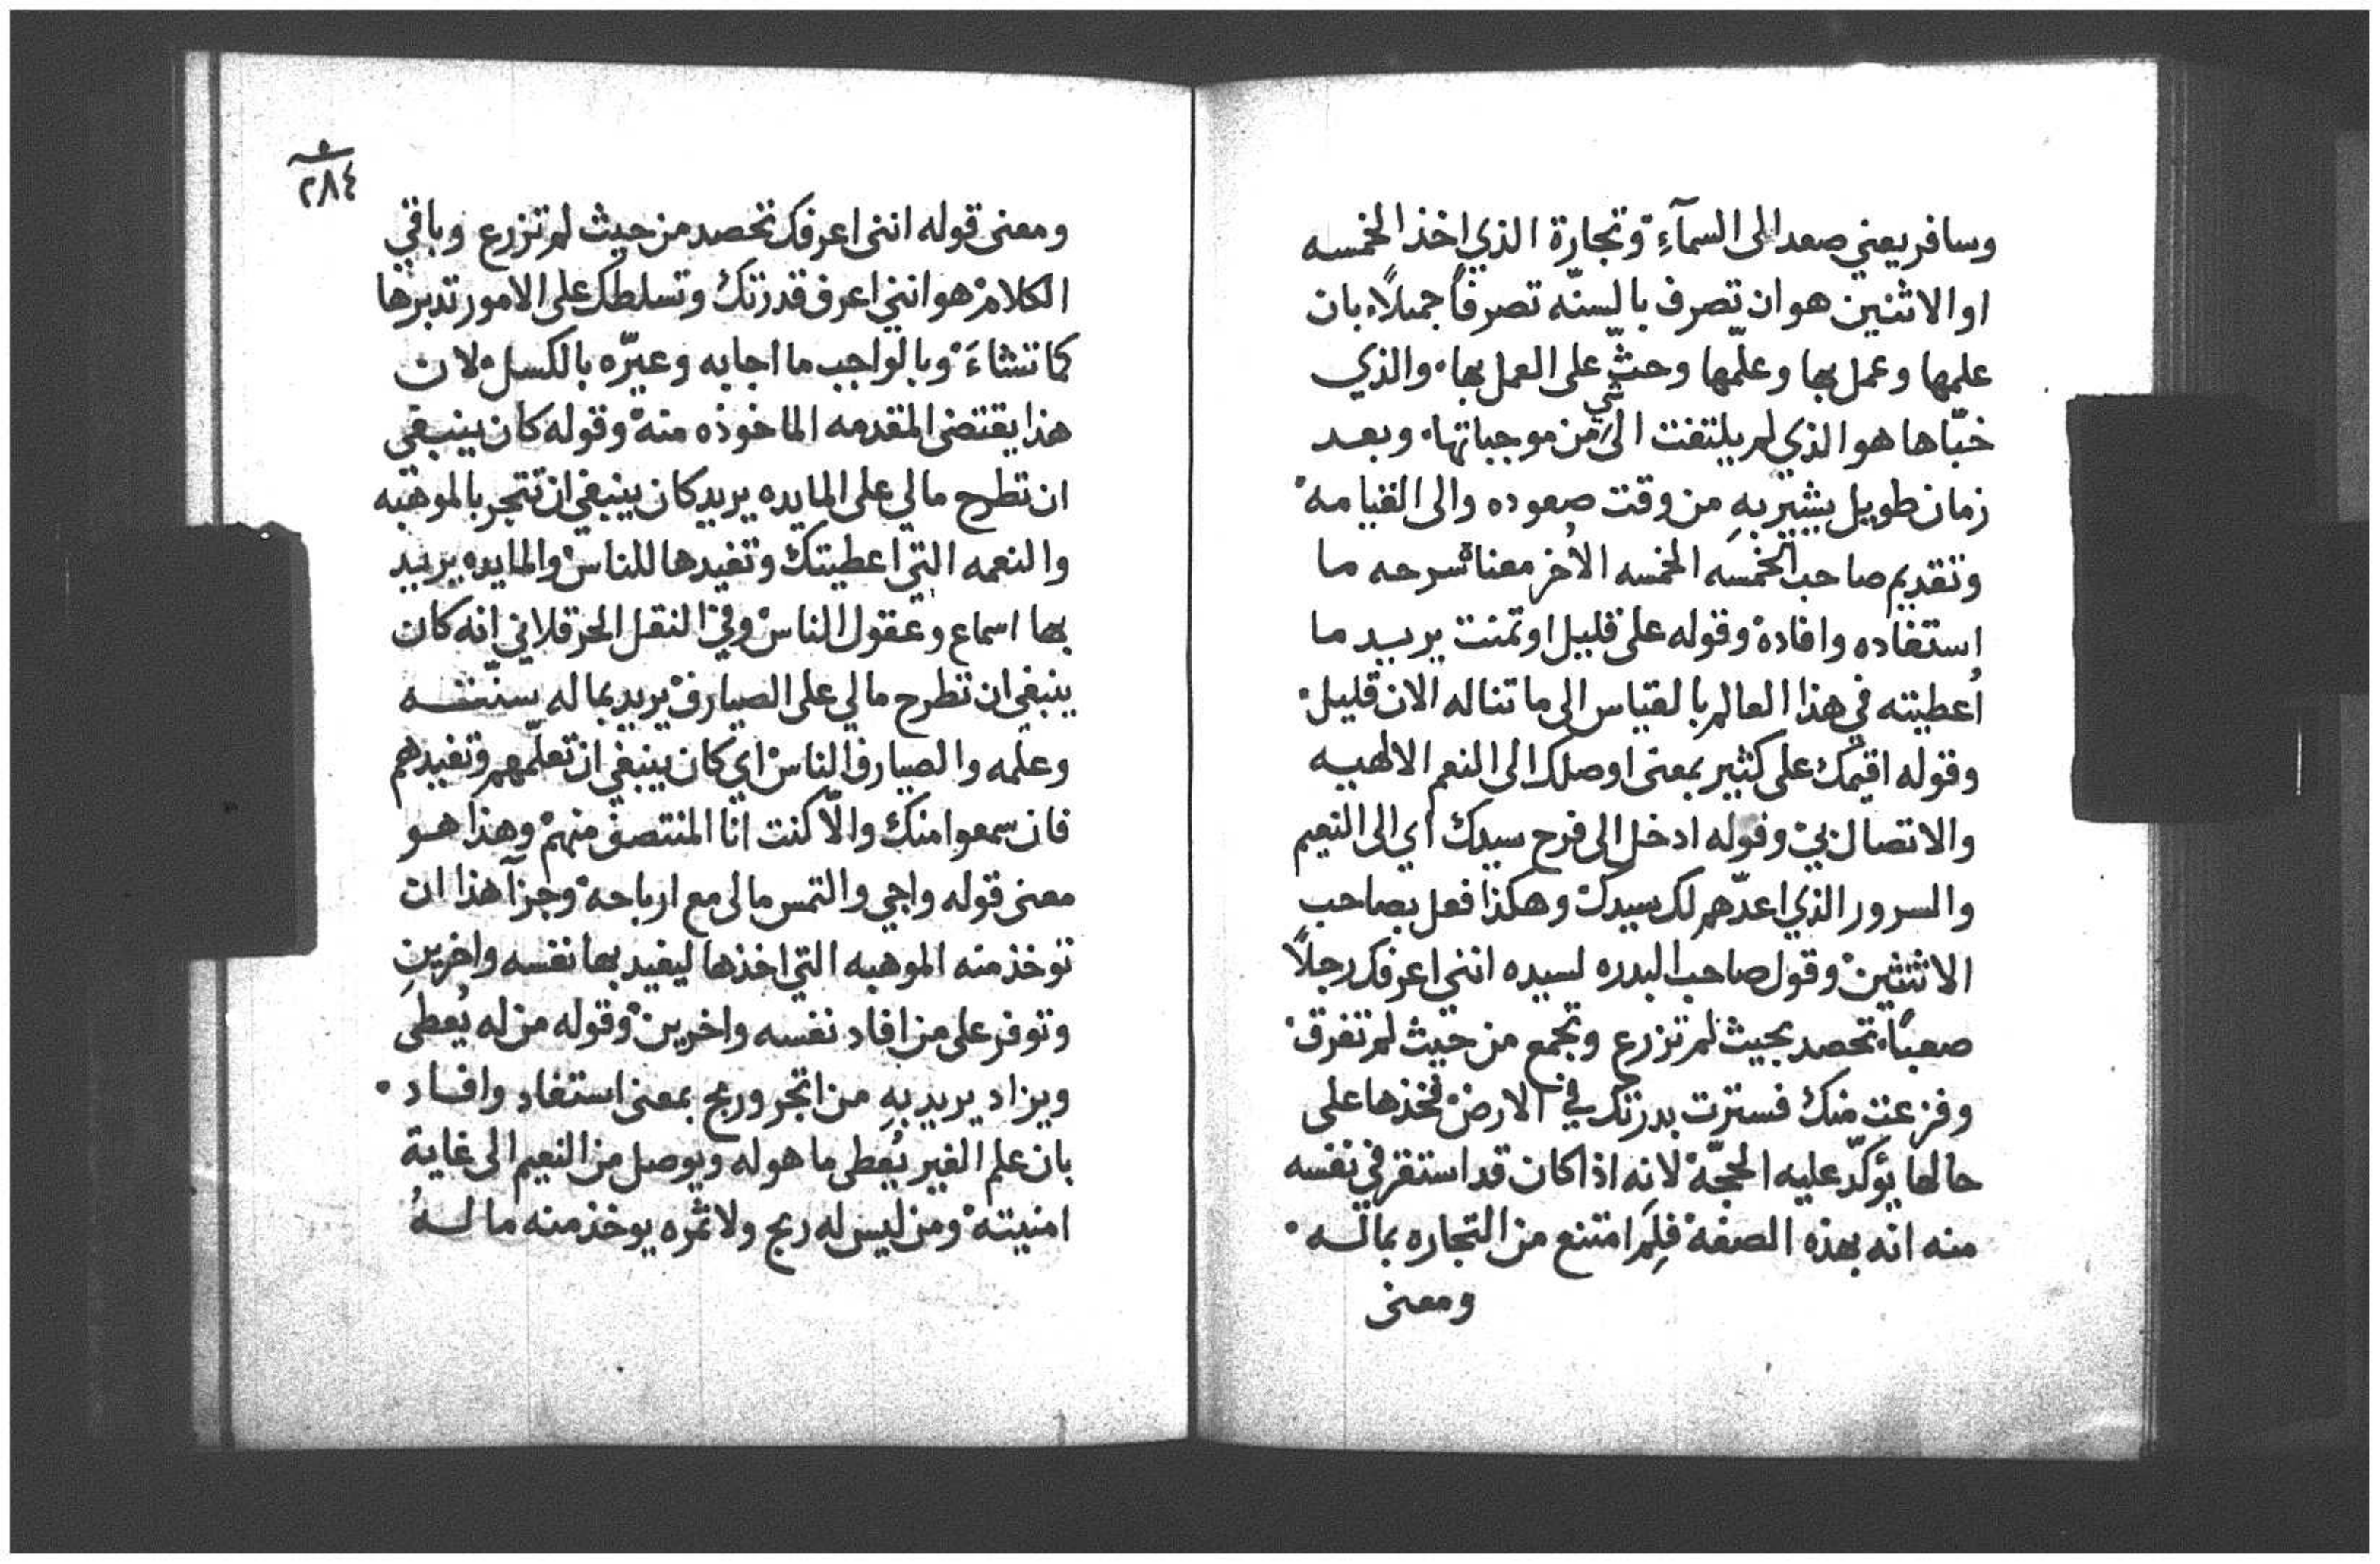 وسافر يعني صعد الى السمآءِ وتجارة الذي اخذ الخمسه
او الاثنين هو ان تصرف بالسنّه تصرفاً جميلاً بان
علمها وعمل بها وعلّمها وحثّ على العمل بها والذي
خبّاها هو الذي لم يلتفت الى شي من موجباتها وبعد
زمان طويل يشير بهِ من وقت صعوده والى القيامه
وتقديم صاحب الخمسه الخمسه الأخر معناه شرحه ما
استفاده وافاده وقوله على قليل اوتمنت يريد ما
أعطيته في هذا العالم بالقياس الى ما تناله الان قليل
وقوله اقيمك على كثير بمعنى اوصلك الى النعم الالهيه
والاتصال بي وقوله ادخل الى فرح سيدك اي الى النعيم
والسرور الذي اعدّهم لك سيدك وهكذا فعل بصاحب
الاثنين وقول صاحب البدره لسيده انني اعرفك رجلاً
صعباً تحصد بحيث لم تزرع وتجمع من حيث لم تفرق
وفزعت منك فسترت بدرتك في الارض فخذها على
حالها يؤكّد عليه الحجّة لانه اذا كان قد استقر في نفسه
منه انه بهذه الصفة فلِمَ امتنع من التجاره بماله
ومعنى
٢٨٤
ومعنى قوله انني اعرفك تحصد من حيث لم تزرع وباقي
الكلام هو انني اعرف قدرتك وتسلطك على الامور تدبرها
كما تشاءَ وبالواجب ما اجابه وعيّره بالكسل لان
هذا يقتضى المقدمه الماخوذه منه وقوله كان ينبغي
ان تطرح مالي على المايده يريد كان ينبغي ان تتجر بالموهبه
والنعمه التي اعطيتك وتفيدها للناس والمايده يريد
بها اسماع وعقول الناس وفي النقل الحرقلاني انه كان
ينبغي ان تطرح مالي على الصيارف يريد بماله سنّته
وعلمه والصيارف الناس اي كان ينبغي ان تعلّمهم وتفيدهم
فان سمعوا منك والّا كنت انا المنتصف منهم وهذا هو
معنى قوله واجي والتمس مالى مع ارباحه وجزآ هذا ان
توخذ منه الموهبه التي اخذها ليفيد بها نفسه واخرينِ
وتوفر على من افاد نفسه واخرين وقوله من له يُعطى
ويزاد يريد بهِ من اتجر وربح بمعنى استفاد وافاد
بان علم الغير يُعطى ما هو له ويوصل من النعيم الى غاية
امنيته ومن ليس له ربح ولا ثمره يوخذ منه ما لهُ